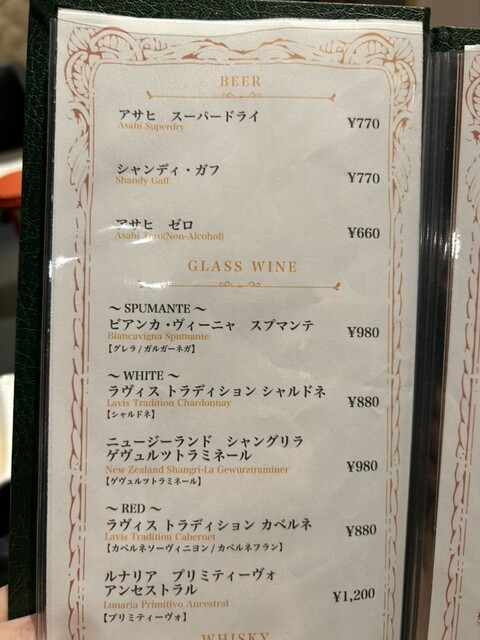 BEER
アサヒ スーパードライ ¥770
Asahi Superdry
シャンディ・ガフ ¥770
Shandy Gaff
アサヒ ゼロ ¥660
Asahi Zero(Non-Alcohol)
GLASS WINE
～ SPUMANTE ～
ビアンカ・ヴィーニャ スプマンテ ¥980
Biancavigna Spumante
【グレラ / ガルガーネガ】
～ WHITE ～
ラヴィス トラディション シャルドネ ¥880
Lavis Tradition Chardonnay
【シャルドネ】
ニュージーランド シャングリラ
ゲヴュルツトラミネール ¥980
New Zealand Shangri-La Gewurztraminer
【ゲヴュルツトラミネール】
～ RED ～
ラヴィス トラディション カベルネ ¥880
Lavis Tradition Cabernet
【カベルネソーヴィニヨン / カベルネフラン】
ルナリア プリミティーヴォ
アンセストラル ¥1,200
Lunaria Primitivo Ancestral
【プリミティーヴォ】
WHISKY